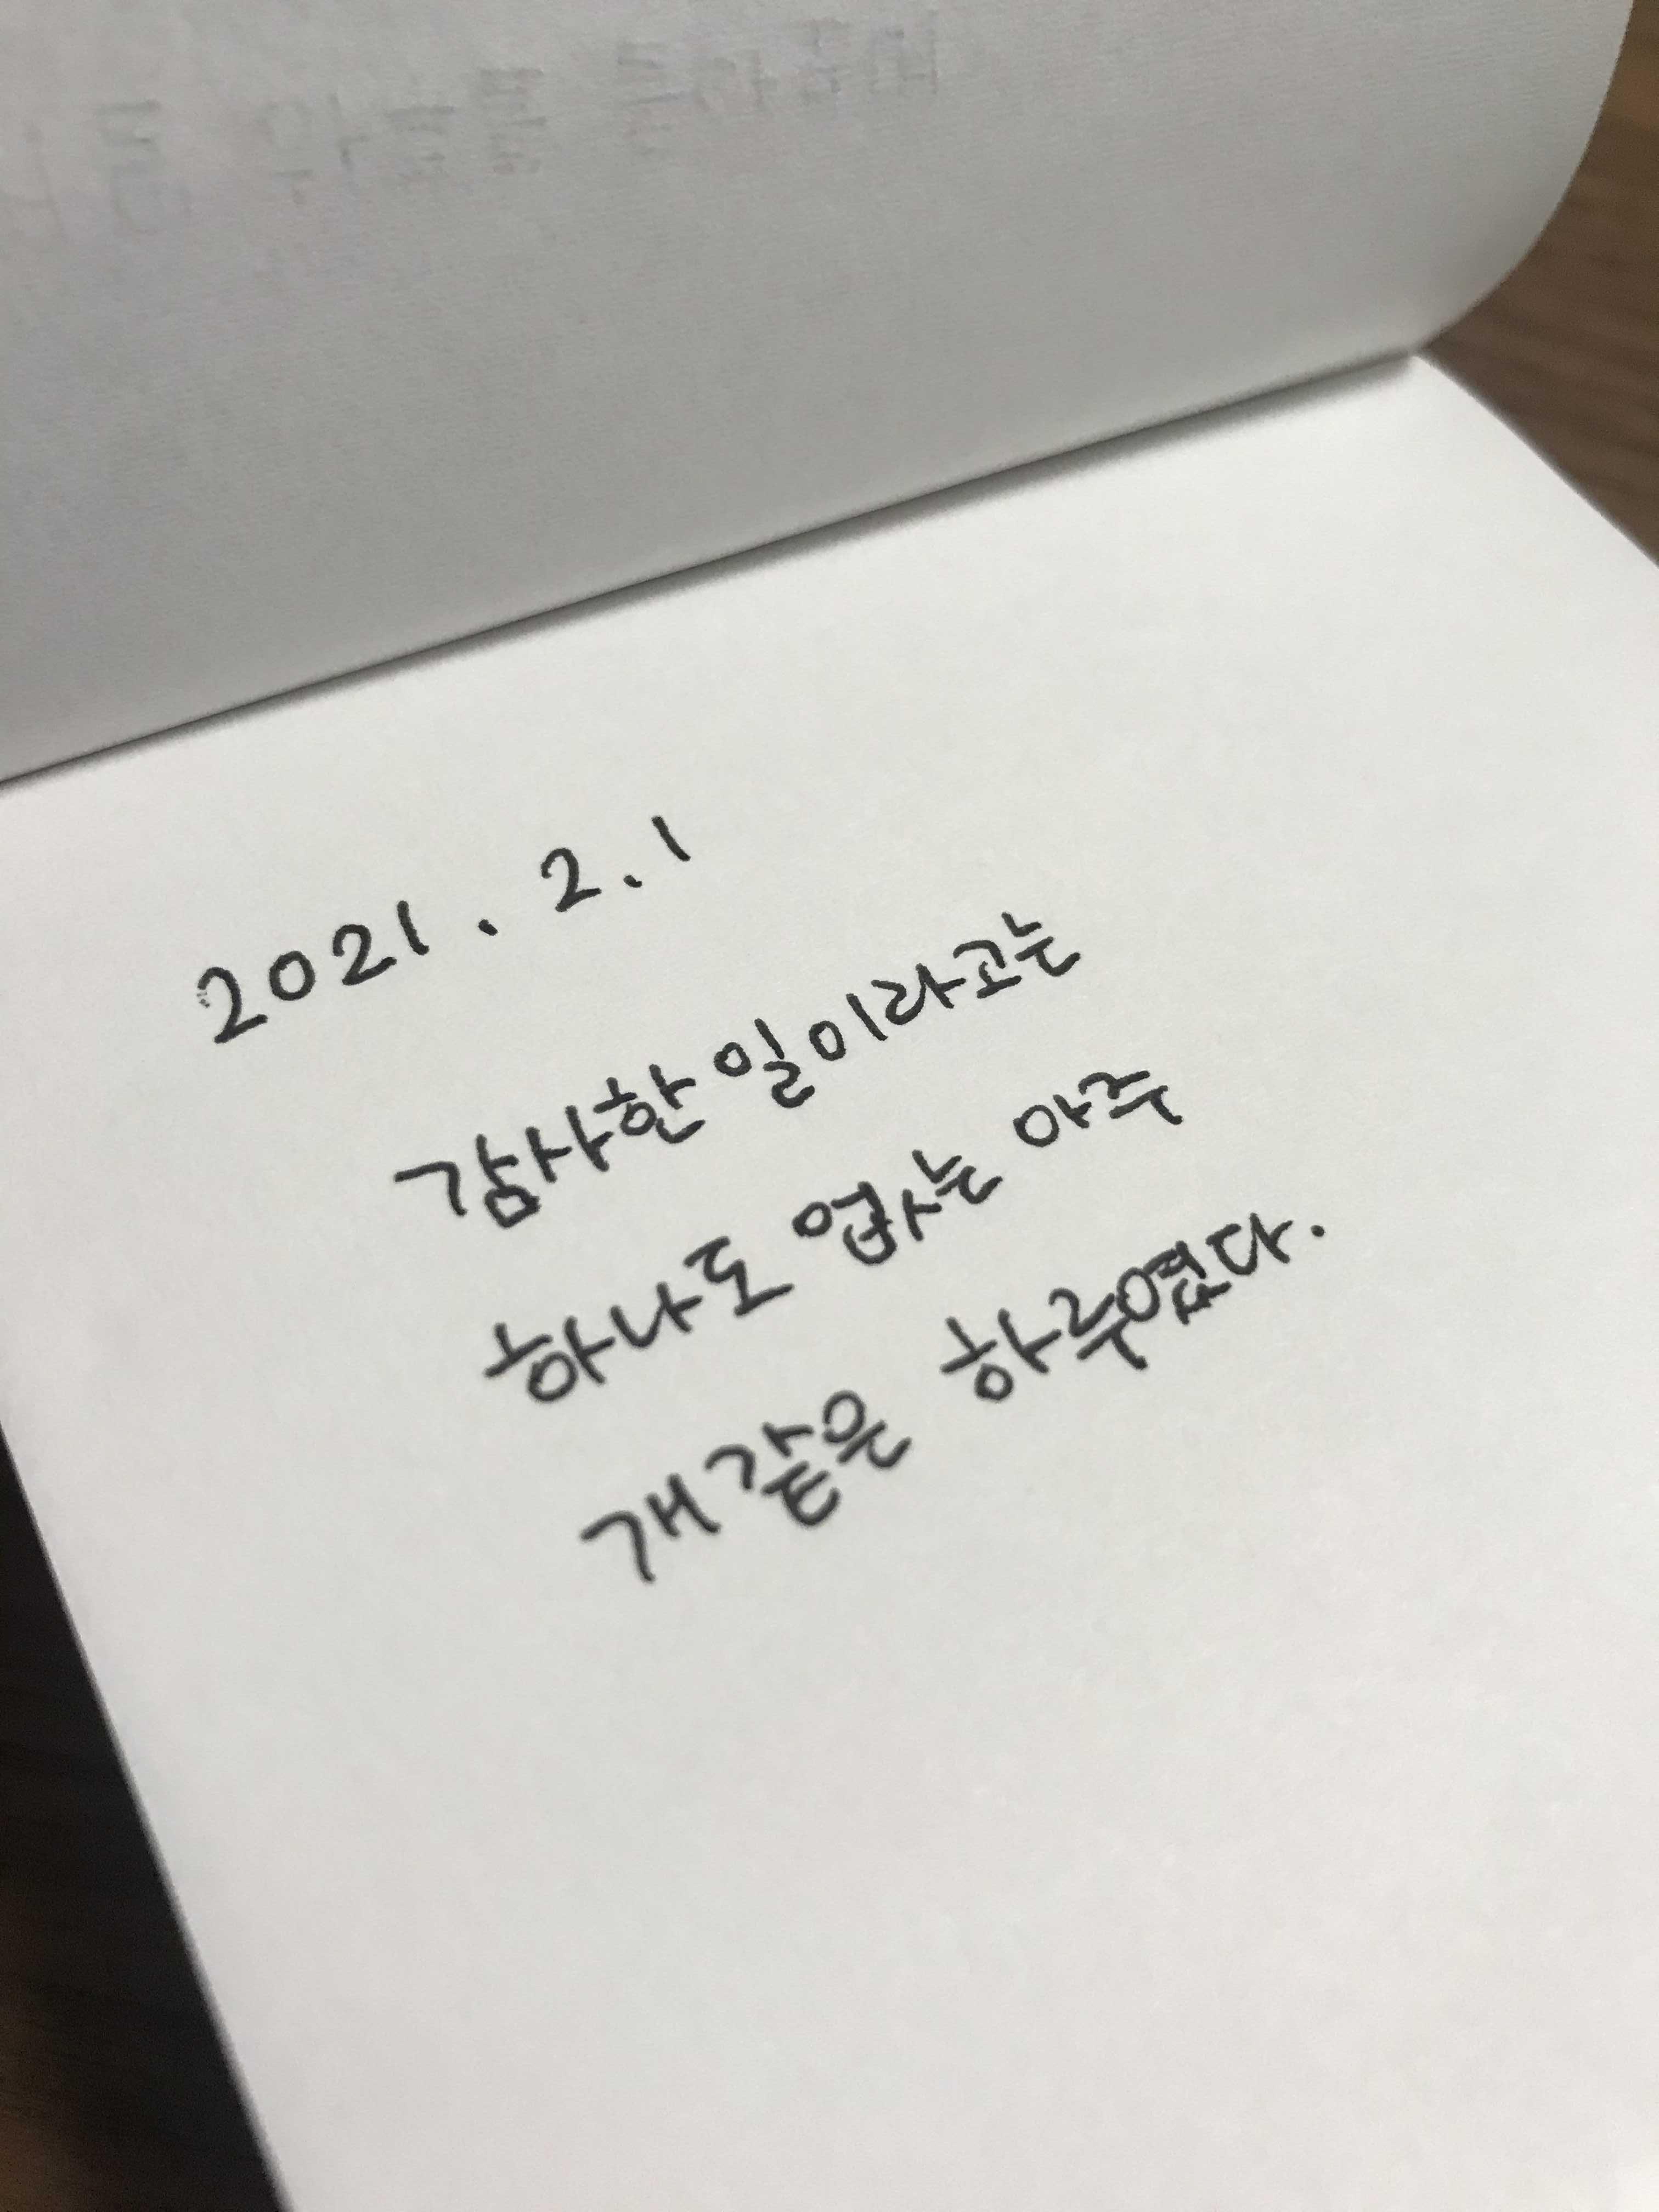 2021. 2. 1
감사한 일이라고는
하나도 업사는 아주
개같은 하루였다.